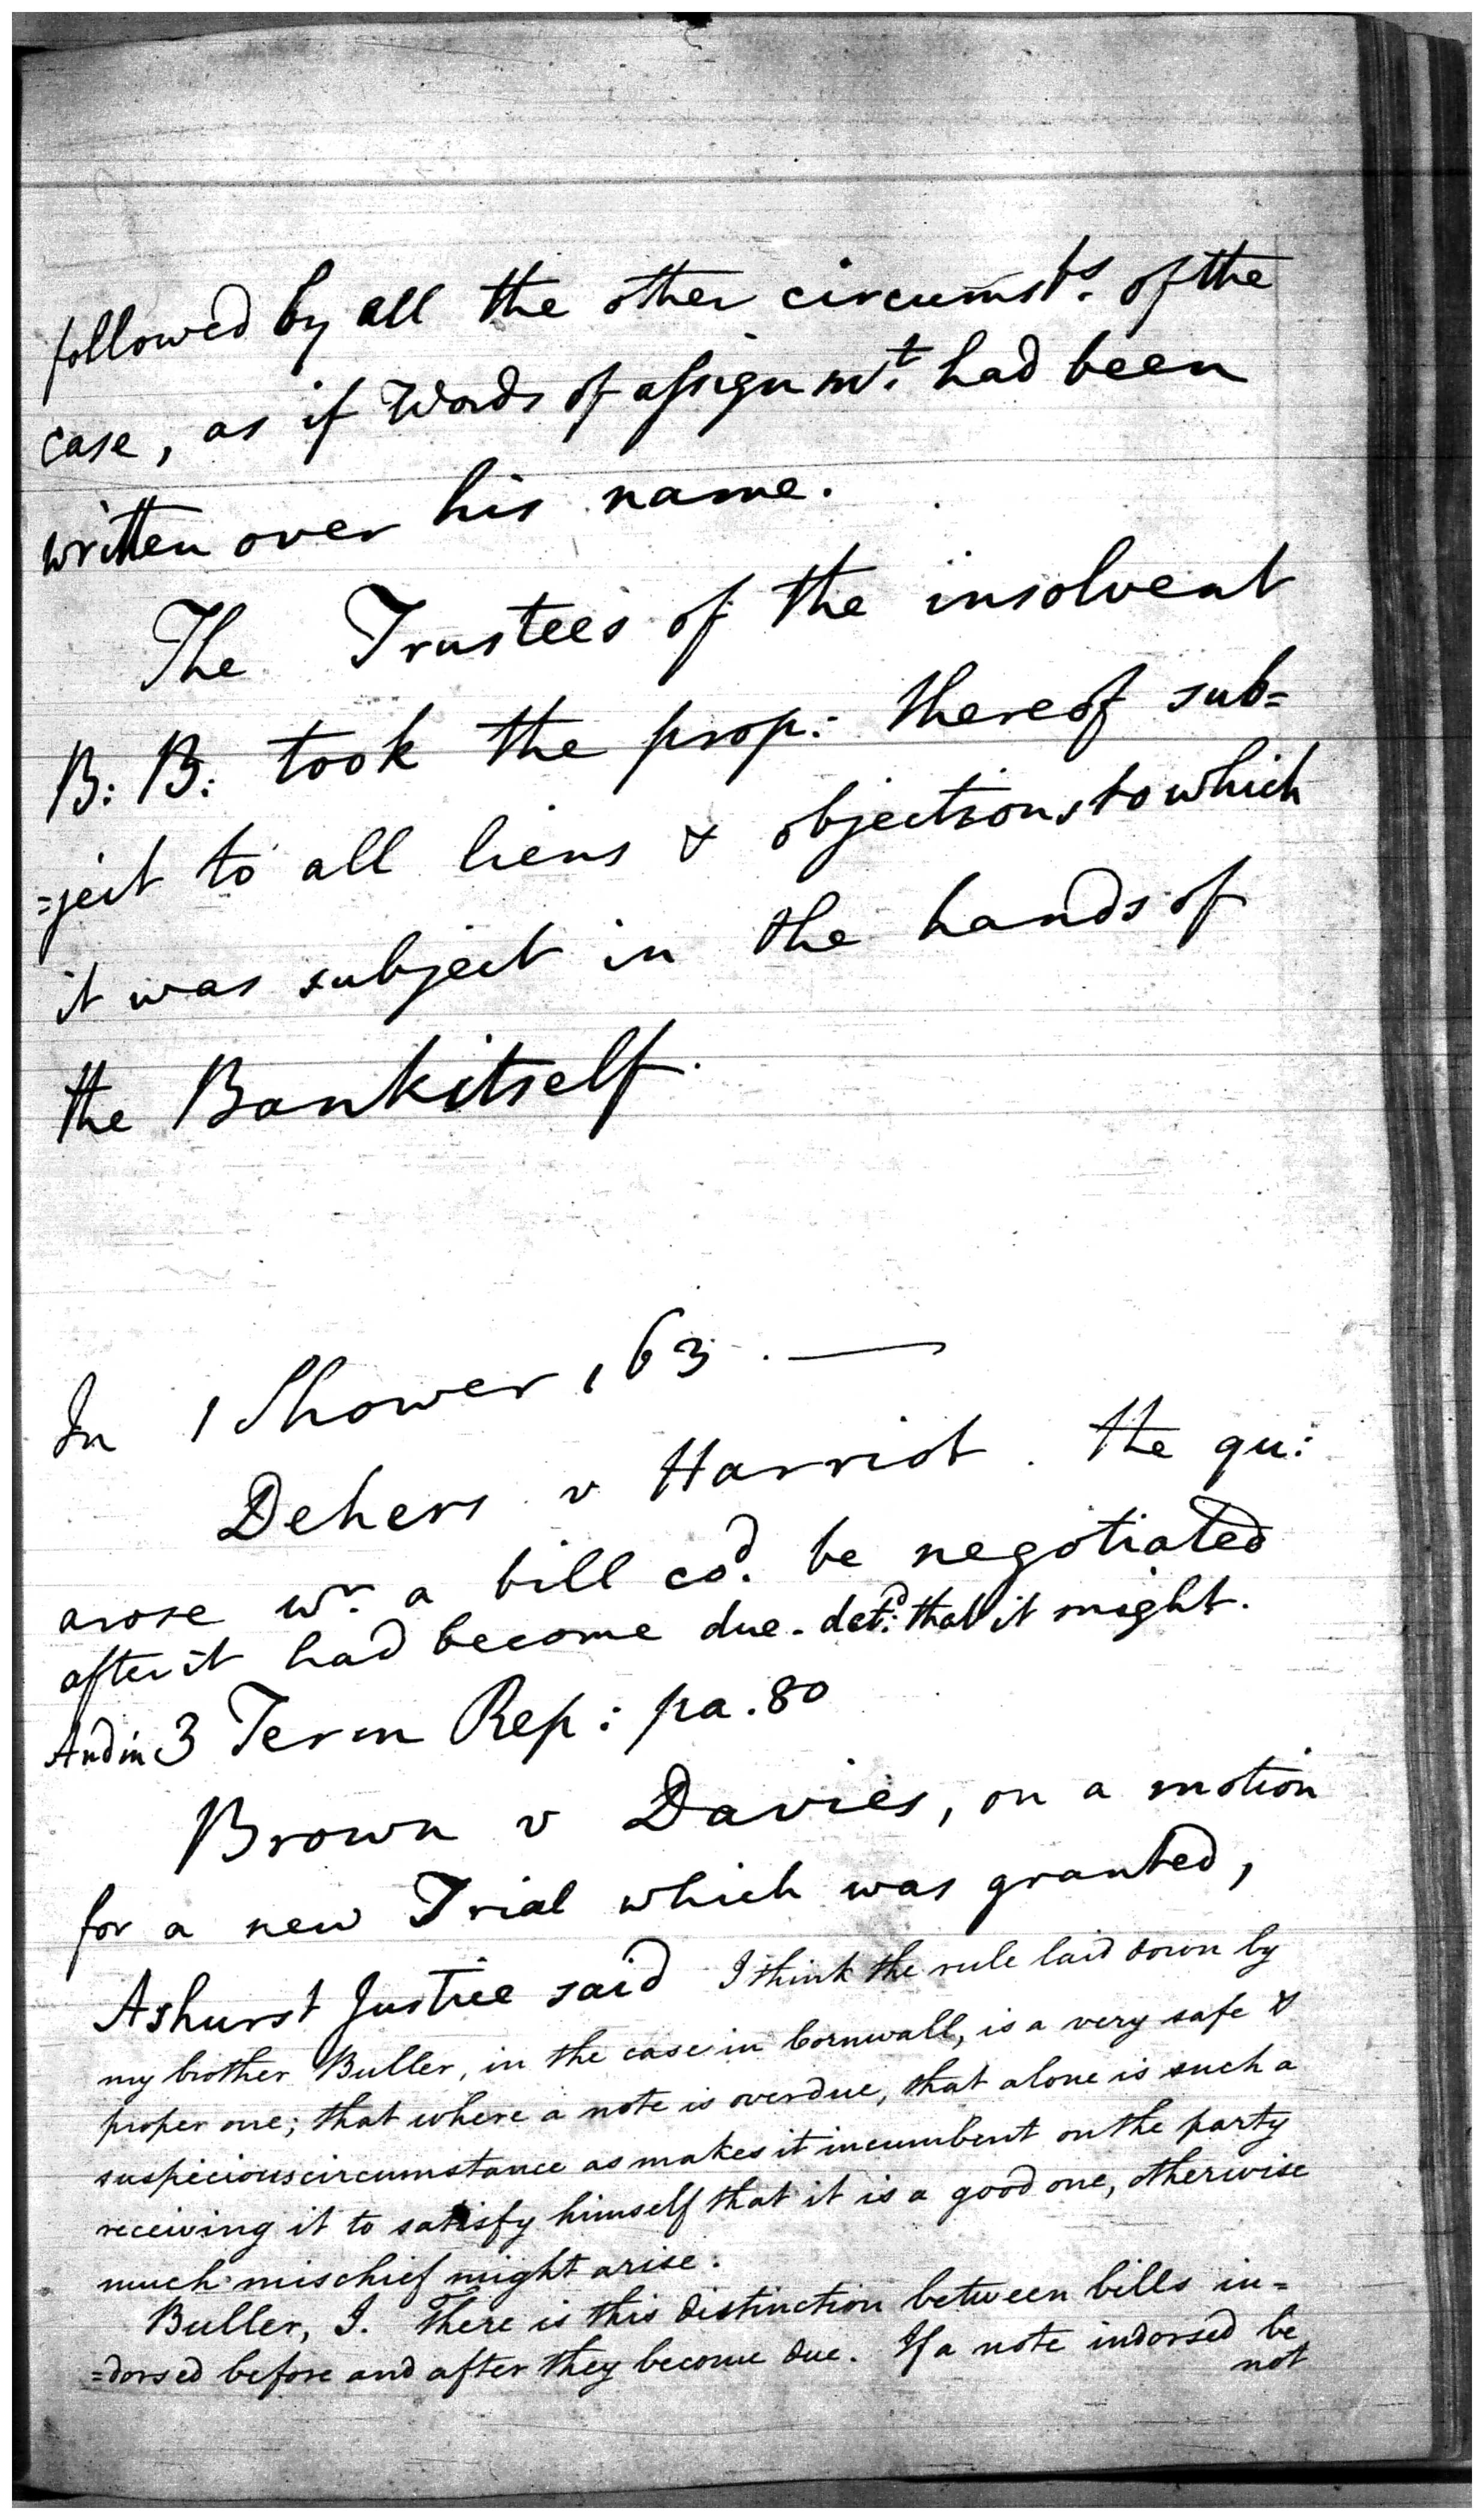 followed by all the other circumsts. of the
case, as if Words of assignmt. had been
written over his name.
The Trustees of the insolvent
B: B: took the prop: thereof sub=
=ject to all liens & objections to which
it was subject in the hands of
the Bank itself.
In 1 Shower 163. —
Dehers v Harriot. the qu:
arose wr. a bill cod. be negotiated
after it had become due. detd: that it might.
And in 3 Term Rep: pa. 80
Brown v Davies, on a motion
for a new Trial which was granted,
Ashurst Justice said I think the rule laid down by
my brother Buller, in the case in Cornwall, is a very safe &
proper one; that where a note is overdue, that alone is such a
suspicious circumstance as makes it incumbent on the party
receiving it to satisfy himself that it is a good one, otherwise
much mischief might arise.
Buller, J. There is this distinction between bills in=
=dorsed before and after they become due. If a note indorsed be
not